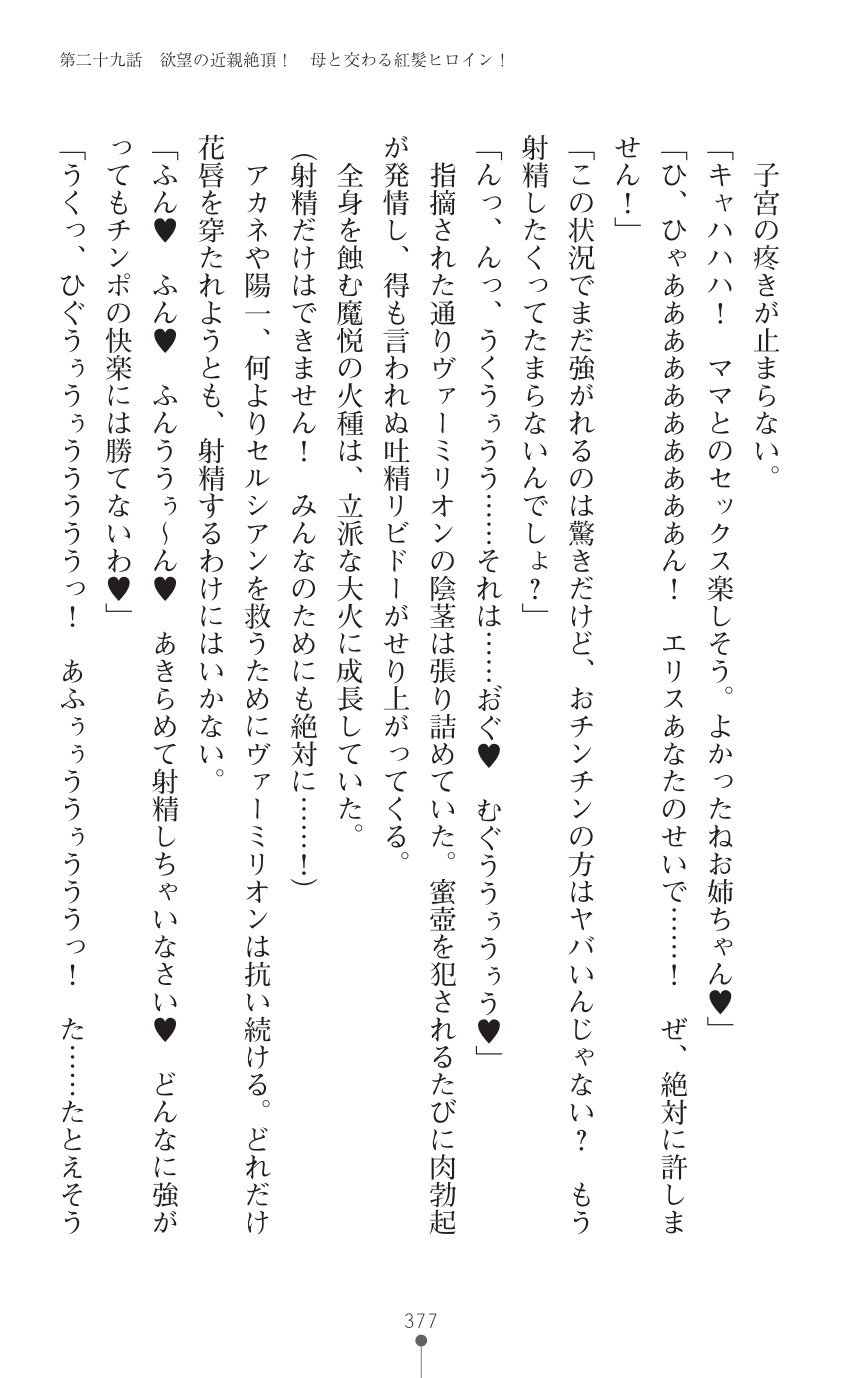 第二十九話　欲望の近親絶頂！　母と交わる紅髪ヒロイン！
　子宮の疼きが止まらない。
「キャハハハ！　ママとのセックス楽しそう。よかったねお姉ちゃん♥」
「ひ、ひゃあああああああああん！　エリスあなたのせいで……！　ぜ、絶対に許しま
せん！」
「この状況でまだ強がれるのは驚きだけど、おチンチンの方はヤバいんじゃない？　もう
射精したくってたまらないんでしょ？」
「んっ、んっ、うくうぅうう……それは……お゛ぐ♥　むぐううぅうぅう♥」
　指摘された通りヴァーミリオンの陰茎は張り詰めていた。蜜壺を犯されるたびに肉勃起
が発情し、得も言われぬ吐精リビドーがせり上がってくる。
　全身を蝕む魔悦の火種は、立派な大火に成長していた。
（射精だけはできません！　みんなのためにも絶対に……！）
　アカネや陽一、何よりセルシアンを救うためにヴァーミリオンは抗い続ける。どれだけ
花唇を穿たれようとも、射精するわけにはいかない。
「ふん♥　ふん♥　ふんううぅ～ん♥　あきらめて射精しちゃいなさい♥　どんなに強が
ってもチンポの快楽には勝てないわ♥」
「うくっ、ひぐうぅうぅうううううっ！　あふぅぅううぅうううっ！　た……たとえそう
377